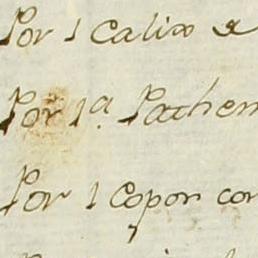 Por 1 Calix
Por 1ª. Pathen
Por 1 Copon con